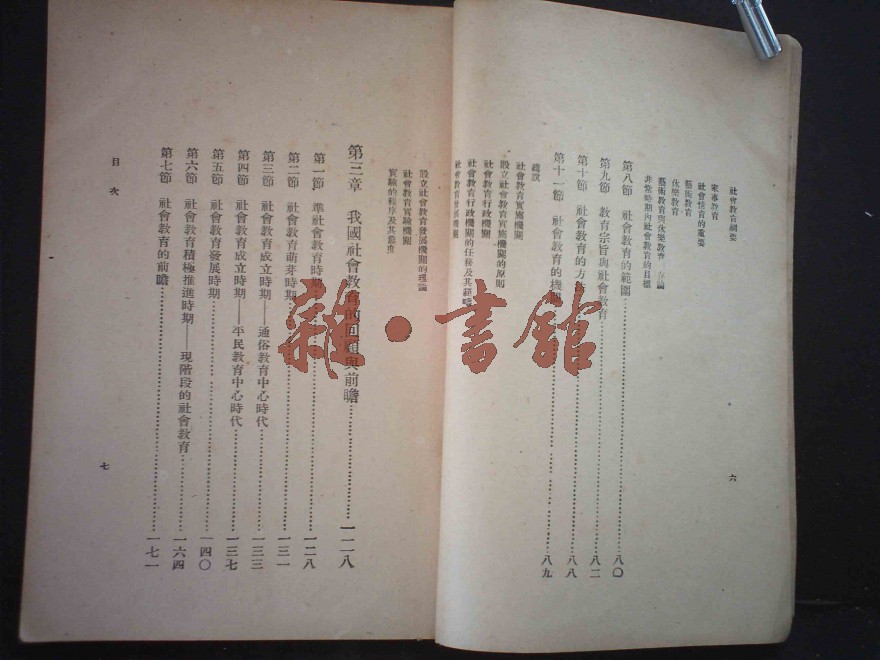 社會教育綱要
家事教育
社會情育的重要
藝術教育
休樂教育
藝術教育與休樂教育
非常時期內社會教育的目標
第八節 社會教育的範圍 八〇
第九節 教育宗旨與社會教育 八二
第十節 社會教育的方 八八
第十一節 社會教育的機關 八九
總說
社會教育實施機關
設立社會教育實施機關的原則
社會教育行政機關
社會教育行政機關的任務及其
社會教育發展機關
六
設立社會教育發展機關的理論
社會教育實驗機關
實驗的程序及其態度
第三章 我國社會教育的回顧與前瞻 一二八
第一節 準社會教育時期 一二八
第二節 社會教育萌芽時期 一三一
第三節 社會教育成立時期——通俗教育中心時代 一三三
第四節 社會教育成立時期——平民教育中心時代 一三七
第五節 社會教育發展時期 一四〇
第六節 社會教育積極推進時期——現階段的社會教育 一六四
第七節 社會教育的前瞻 一七一
目次
七
雜·書館